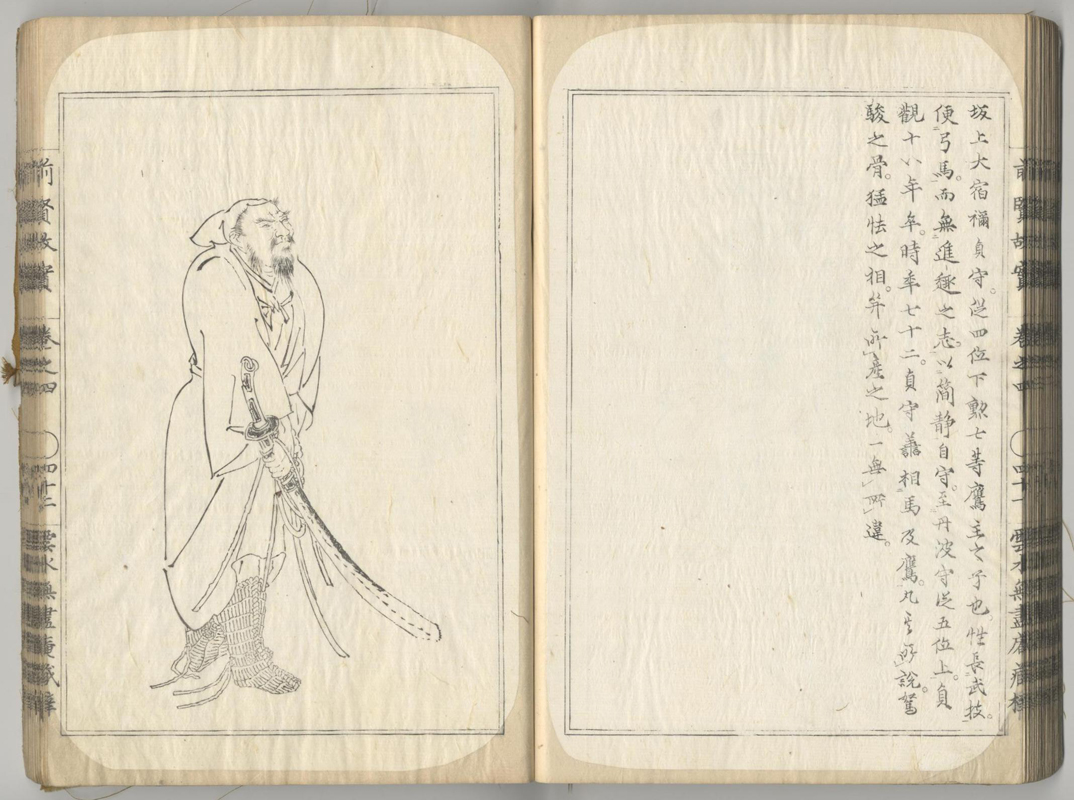 坂上大宿禰貞守。從四位下勲七等鷹主之子也。性長武技。
便弓馬。而無進趣之志。以簡静自守。至丹波守從五位上。貞
觀十八年卒。時年七十二。貞守善相馬及鷹。凡其所說駑
駿之骨。猛怯之相。并所產之地。一無所違。
前賢故實 卷之四 四十一
前賢故實 卷之四 四十二